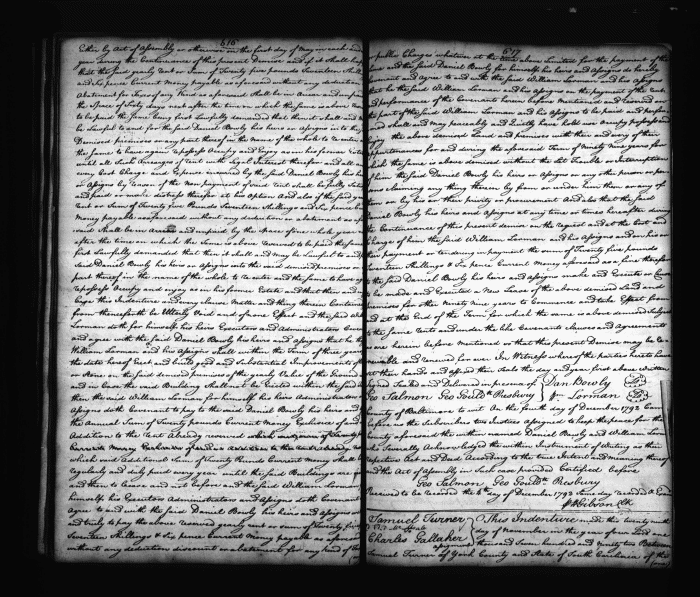 616
Either by Act of Assembly or otherwise on the first day of May in each and
year during the Continuance of this present Demise and if it shall hap
that the said yearly rent or Sum of Twenty five pounds Seventeen Shill
and Six pence Current Money payable as aforesaid without any deduction
Abatement for Taxes of any kind as aforesaid shall be in Arrear and unpaid
the Space of Sixty days next after the time on which the same as above
to be paid the same being first lawfully demanded that then it shall and
be lawful to and for the said Daniel Bowly his heirs or Assigns into the
Demised premises or any part thereof in the name of the whole to reenter
the same to have again repossess Occupy and Enjoy as in his former
until all such Arrearages of rent with legal Interest therefor and all
every Cost Charge and Expence incurred by the said Daniel Bowly his
or Assigns by reason of the non payment of said rent shall be fully
and paid or make distress therefor at his Option And also if the said
rent or Sum of Twenty five Pounds Seventeen Shillings and Six pence
Money payable as aforesaid without any deduction or abatement as
said Shall be in Arrear and unpaid by the space of one whole year
after the time on which the Same is above reserved to be paid the same
first lawfully demanded that then it shall and may be lawful to and
said Daniel Bowly his heirs or Assigns into the said demised premises or
part thereof in the name of the whole to reenter and the same to have
repossess Occupy and enjoy as in his former Estate and that then and
Case this Indenture and every clause matter and thing therein Contained
from thenceforth be Utterly Void and of none Effect and the said
Lorman doth for himself his heirs Executors and Administrators Cove
and agree with the said Daniel Bowly his heirs and Assigns that he the
William Lorman and his Assigns shall within the Term of three years
the date hereof Erect and build good and Substantial Improvements
or More on the said demised premises of the yearly Value of the Ground
and in Case the said Building Shall not be Erected within the said
then the said William Lorman for himself his heirs Administrators
Assigns doth Covenant to pay to the said Daniel Bowly his heirs and
the Annual Sum of Twenty pounds Current Money Exclusive of and
Addition to the rent Already reserved which said Sum of Twenty
Current Money Exclusive of and in addition to the rent already
which said Additional Sum of Twenty Pounds Current Money shall be
regularly and duly paid every year until the said Buildings are
and then to Cease and not before and the said William Lorman
himself his Executors Administrators and Assigns doth Covenant
Agree to and with the said Daniel Bowly his heirs and Assigns
and truly to pay the above reserved yearly rent or sum of Twenty five
Seventeen Shillings & Six pence Current Money payable as aforesaid
without any deduction discount or abatement for any kind of
617
or public Charges whatsoever at the time above Limited for the payment of the
and the said Daniel Bowly for himself his heirs and Assigns do hereby
Covenant and agree to and with the said William Lorman and his Assigns
that he the said William Lorman and his Assigns on the payment of the rent
and performance of the Covenants herein before Mentioned and contained on
the part of the said William Lorman and his Assigns to be paid and performed
and shall and may peaceably and Quietly have hold use Occupy possess and
the above demised Land and premises with them and every of their
appurtenances for and during the aforesaid Term of Ninety nine years for
which the same is above demised without the Let Trouble or Interruption
of him the said Daniel Bowly his heirs or Assigns or any other person or persons
claiming any thing therein by from or under him them or any of
them or by his or their privity or procurement And also that the said
Daniel Bowly his heirs and Assigns at any time or times hereafter during
the Continuance of this present demise on the request and at the cost and
Charge of him the said William Lorman and his Assigns and on his or
their payment or tendering in payment the sum of Twenty five pounds
Seventeen Shillings & Six pence Current money aforesaid as a fine therefor
to the said Daniel Bowly his heirs and Assigns make and Execute or Cause
to be made and Executed a New Lease of the above demised Land and
premises for other Ninety nine years to Commence and take Effect from
and at the End of the Term for which the same is above demised Subject
to the same rents and under the like Covenants Clauses and agreements
as are herein before mentioned so that this present Demise may be re
newable and renewed for ever In Witness whereof the parties hereto have
set their hands and affixed their Seals the day and year first above Written
Signed Sealed and Delivered in presence of } Dan Bowly
Geo Salmon Geo Gouldth Presbury } Wm Lorman
County of Baltimore to wit On the fourth day of December 1792 Came
before us the Subscribers two Justices Assigned to keep the peace for the
County aforesaid the within named Daniel Bowly and William Lorman
and Severally Acknowledged the within Instrument of Writing as their
respective Act and Deed According to the true Intent and meaning thereof
and the Act of assembly in Such case provided Certified before
Geo Salmon Geo Gouldth Presbury
Received to be recorded the 6th day of December 1792 Same day recorded & Exam
Wm Gibson Clk
Samuel Turner
Charles Gallaher
assignment
This Indenture made this twenty
day of November in the year of our Lord one
thousand Seven hundred and ninety two Between
Samuel Turner of York County and State of South Carolina of the